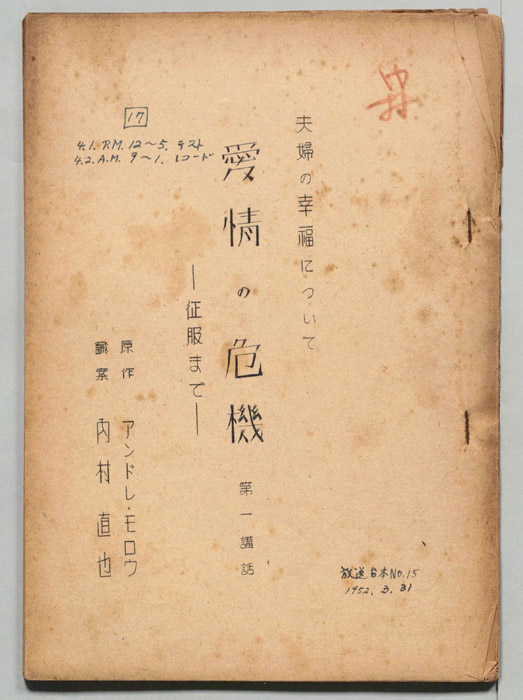 夫婦の幸福について
愛情の危機 第一講話
―征服まで―
原作 アンドレ・モロウ
飜案 内村直也
17
4.1. P.M. 12〜5. テスト
4.2. A.M. 9〜1. レコード
放送台本No.15
1952.3.31